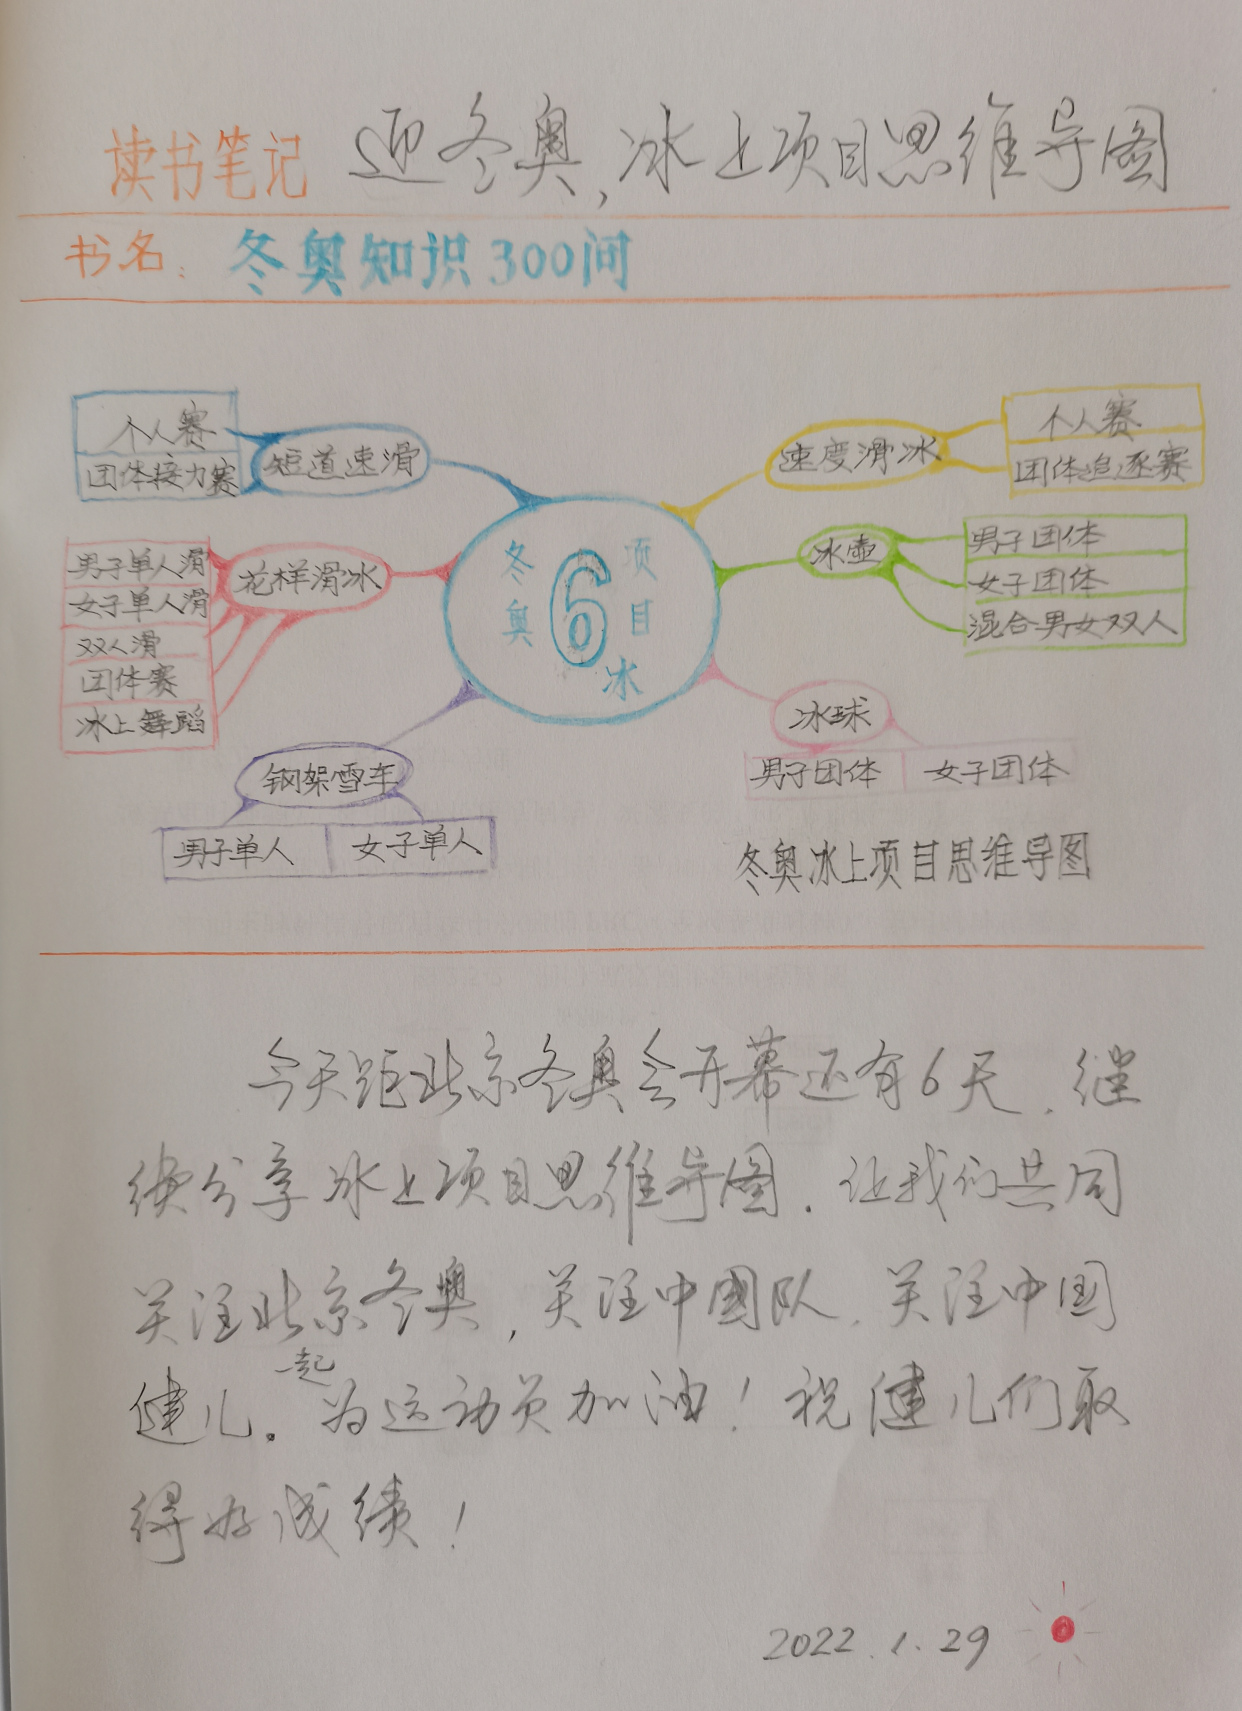 读书笔记 迎冬奥,冰上项目思维导图
书名: 冬奥知识300问
个人赛
团体接力赛
短道速滑
男子单人滑
女子单人滑
双人滑
团体赛
冰上舞蹈
花样滑冰
钢架雪车
男子单人 女子单人
冬奥
6
项目
冰
速度滑冰
个人赛
团体追逐赛
冰壶
男子团体
女子团体
混合男女双人
冰球
男子团体 女子团体
冬奥冰上项目思维导图
今天距北京冬奥会开幕还有6天,继
续分享冰上项目思维导图.让我们共同
关注北京冬奥,关注中國队.关注中国
健儿。一起为运动员加油!祝健儿们取
得好成绩!
2022.1.29